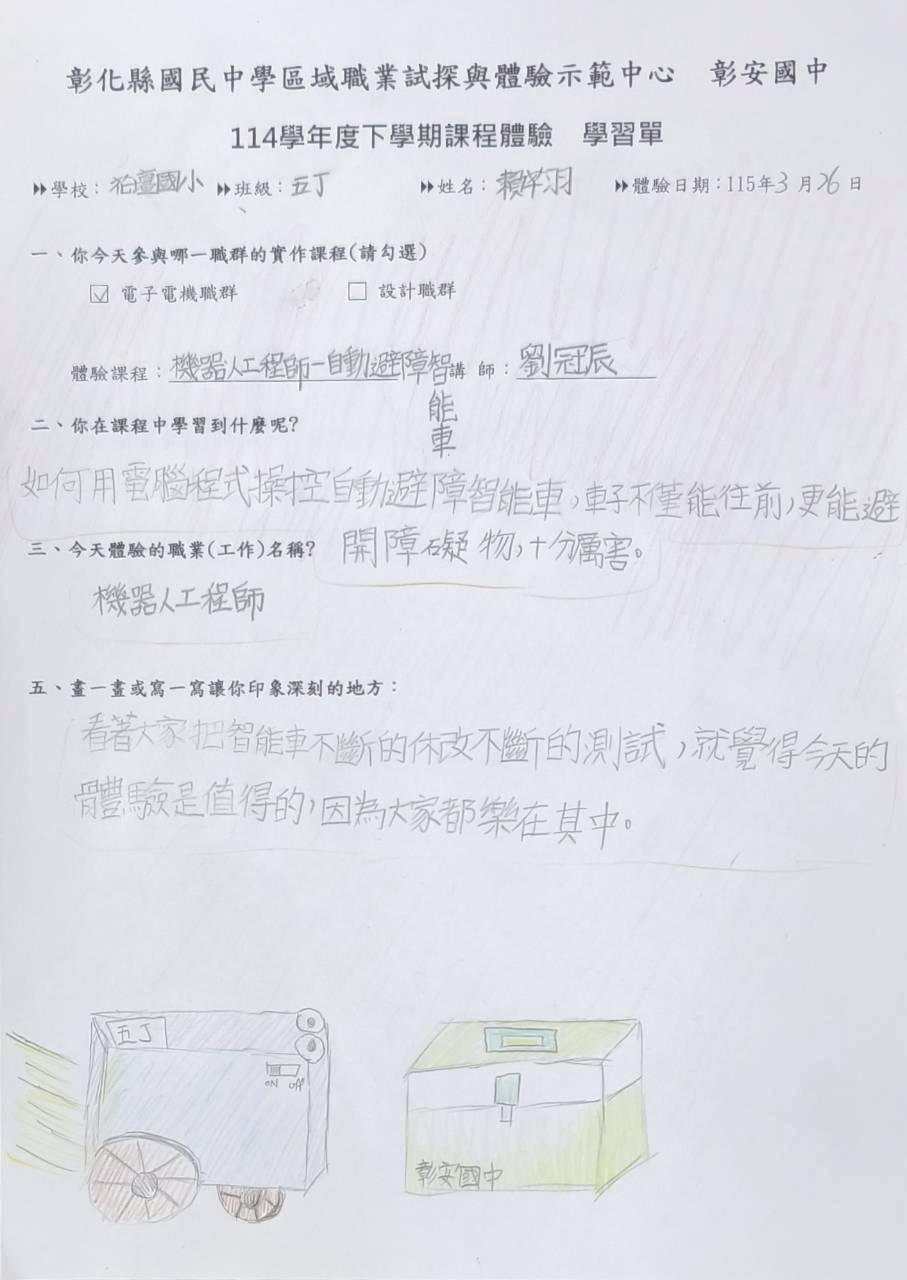 彰化縣國民中學區域職業試探與體驗示範中心　彰安國中
114學年度下學期課程體驗　學習單
學校：國小 班級：五丁 姓名：賴羽 體驗日期：115年3月26日
一、你今天參與哪一職群的實作課程(請勾選)
☑ 電子電機職群　□ 設計職群
體驗課程：機器人工程師-自動避障智能車 講 師：劉冠辰
二、你在課程中學習到什麼呢?
如何用電腦程式操控自動避障智能車，車子不僅能往前，更能避
開障礙物，十分厲害。
三、今天體驗的職業(工作)名稱?
機器人工程師
五、畫一畫或寫一寫讓你印象深刻的地方：
看著大家把智能車不斷的休改不斷的測試，就覺得今天的
體驗是值得的，因為大家都樂在其中。
五丁
ON OFF
彰安國中